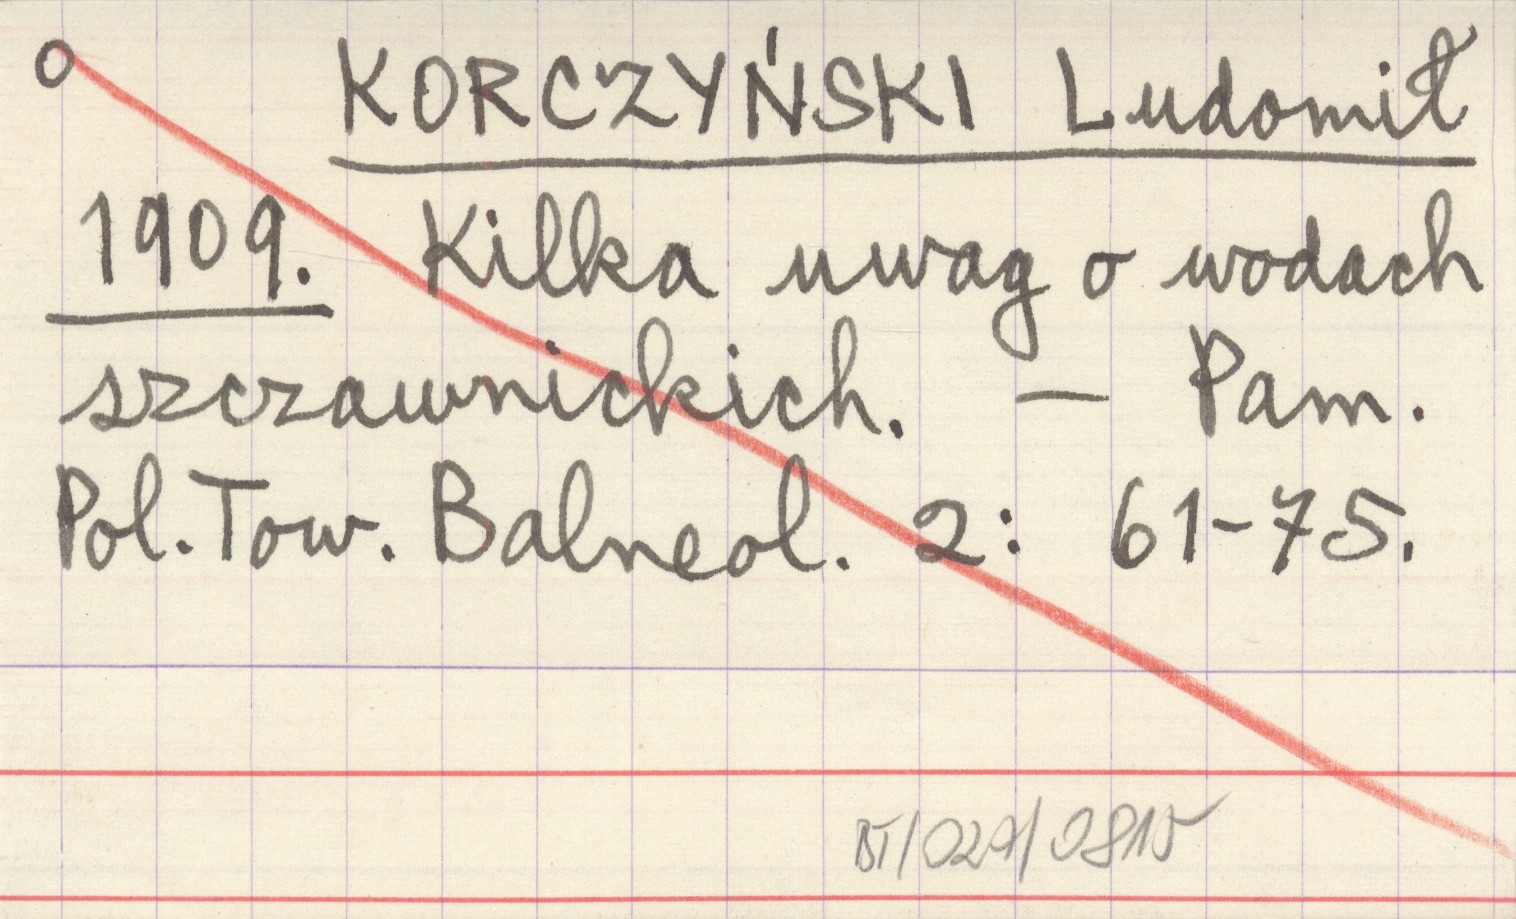 o KORCZYŃSKI Ludomił
1909. Kilka uwag o wodach
szczawnickich. — Pam.
Pol. Tow. Balneol. 2: 61-75.
BT/027/0815